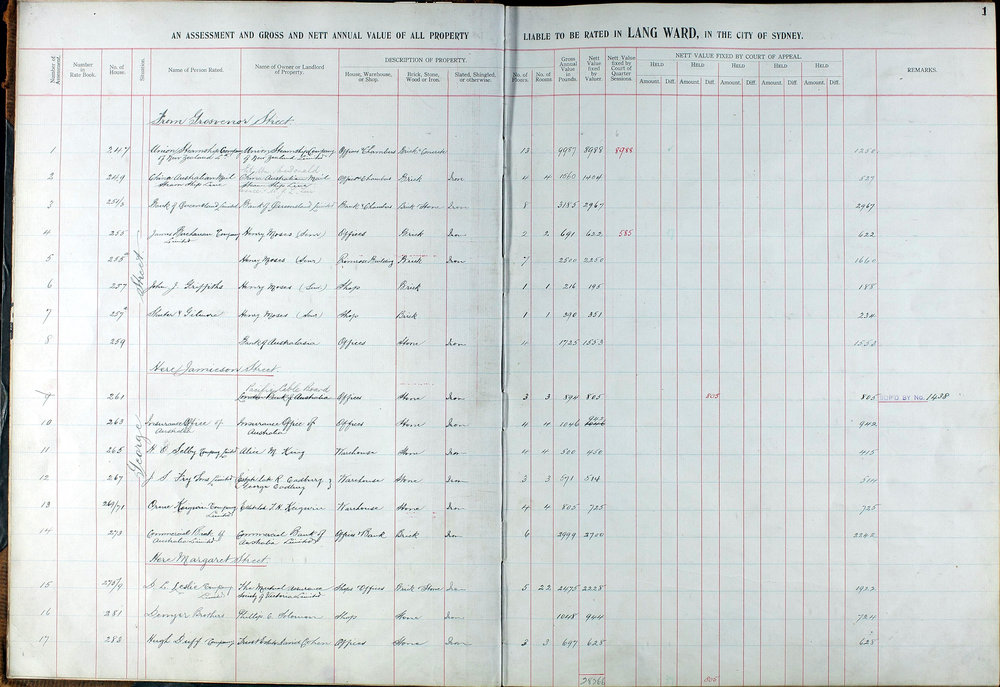 1
AN ASSESSMENT AND GROSS AND NETT ANNUAL VALUE OF ALL PROPERTY LIABLE TO BE RATED IN LANG WARD, IN THE CITY OF SYDNEY.
Number of Assessment. Number of Rate Book. No. of House. Situation. Name of Person Rated. Name of Owner or Landlord of Property. DESCRIPTION OF PROPERTY. House, Warehouse, or Shop. Brick, Stone, Wood or Iron. Slated, Shingled, or otherwise. No. of Floors. No. of Rooms Gross Annual Value in Pounds. Nett Value fixed by Valuer. Nett Value fixed by Court of Quarter Sessions. NETT VALUE FIXED BY COURT OF APPEAL. HELD HELD HELD HELD HELD Amount. Diff. Amount. Diff. Amount. Diff. Amount. Diff. Amount. Diff. REMARKS.
George Street
From Grosvenor Street
1 247 Union Steamship Company of New Zealand Ld Union Steamship Company of New Zealand Limited Offices Chambers Brick Concrete 13 9987 8988 8988 1250
2 249 China Australian Mail Steam Ship Line China Australian Mail Steam Ship Line Offices Chambers Brick Iron 4 4 1560 1404 527
3 251/3 Bank of Queensland Limited Bank of Queensland Limited Bank & Chambers Brick & Stone Iron 8 3185 2967 2967
4 255 James Buchanan Company Limited Henry Moses (Senr) Offices Brick Iron 2 2 691 622 585 622
5 255 Henry Moses (Senr) Building Brick Iron 7 2500 2250 1660
6 257 John J. Griffiths Henry Moses (Senr) Shop Brick 1 1 216 195 188
7 257 & Gilmore Henry Moses (Senr) Shop Brick 1 1 390 351 234
8 259 Bank of Australasia Offices Stone Iron 4 1725 1553 1553
Here Jamieson Street.
Pacific Cable Board
9 261 London Bank of Australia Offices Stone Iron 3 3 894 805 805 805 SUP'D BY No. 1438
10 263 Insurance Office of Australia Insurance Office of Australia Offices Stone Iron 4 4 1046 942 942
11 265 H. E. Selby Company Limited Alice M King Warehouse Stone Iron 4 4 500 450 415
12 267 J S Fry Sons Limited Estate late R Cadbury & George Cadbury Warehouse Stone Iron 3 3 571 514 514
13 269/71 Company Limited Estate late Warehouse Stone Iron 4 4 805 725 725
14 273 Commercial Bank of Australia Limited Commercial Bank of Australia Limited Offices & Bank Brick Iron 6 2999 2700 2242
Here Margaret Street.
15 275/9 Leslie Company Limited The Mutual Assurance Society of Victoria Limited Shops & Offices Brick & Stone Iron 5 22 2475 2228 1922
16 281 Brothers Phillip E. Solomon Shop Stone Iron 1048 944 724
17 283 Hugh Duff Company Cohen Offices Stone Iron 3 3 697 628 628
805